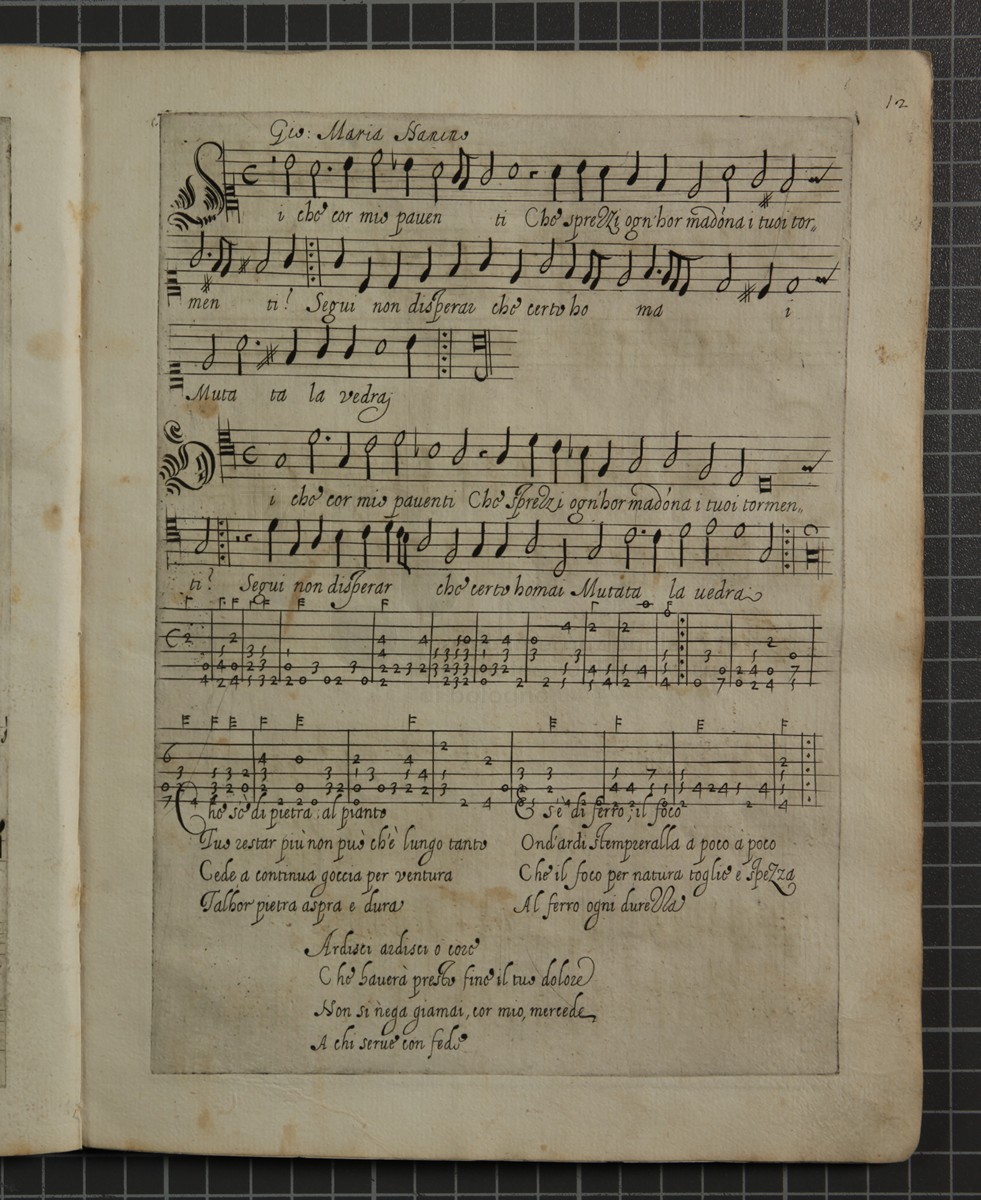 12
Gio: Maria Nanino
Di che cor mio paven ti Che sprezzi ogn'hor madóna i tuoi tor,,
men ti? Segui non disperar che certo ho ma i
Muta ta la vedraj
Di che cor mio paventi Che sprezzi ogn'hor madóna i tuoi tormen,,
ti? Segui non disperar che certo homai Mutata la uedrai
Che se di pietra, al pianto
Tuo restar più non può ch'è lungo tanto
Cede a continua goccia per ventura
Talhor pietra aspra e dura
E s'è di ferro, il foco
Ond'ardi stempreralla a poco a poco
Che il foco per natura toglie e spezza
Al ferro ogni durezza
Ardisci ardisci o core
Che hauerà presto fine il tuo dolore
Non si nega giamai, cor mio, mercede
A chi serue con fede